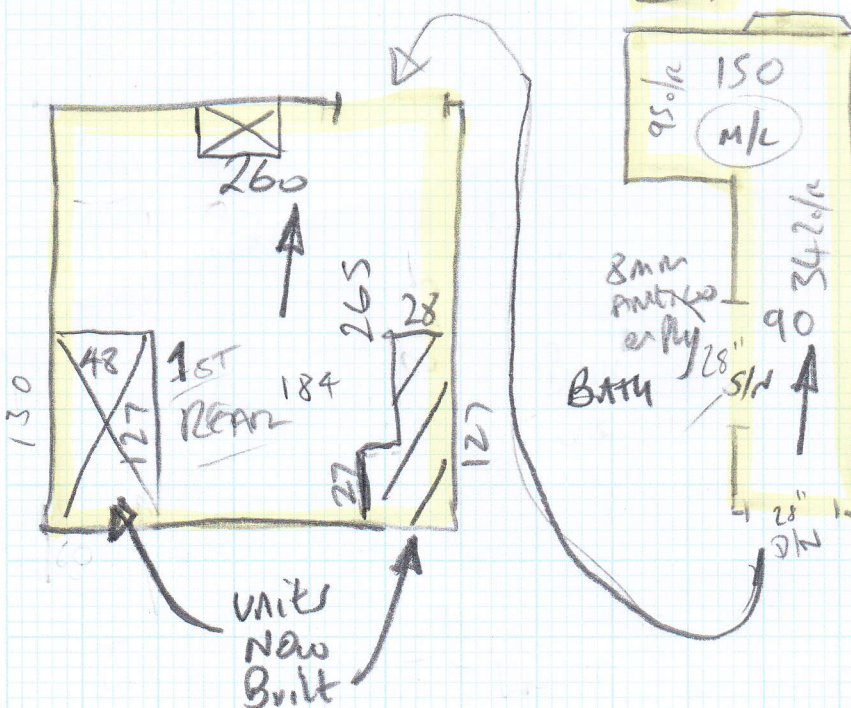 260
265
28
48
127
130
1ST
REAR
184
27
127
Units
Now
Built
150
95 o/R
M/L
342 o/R
8mm
or Ply
90
BATH
28"
S/N
28"
D/N